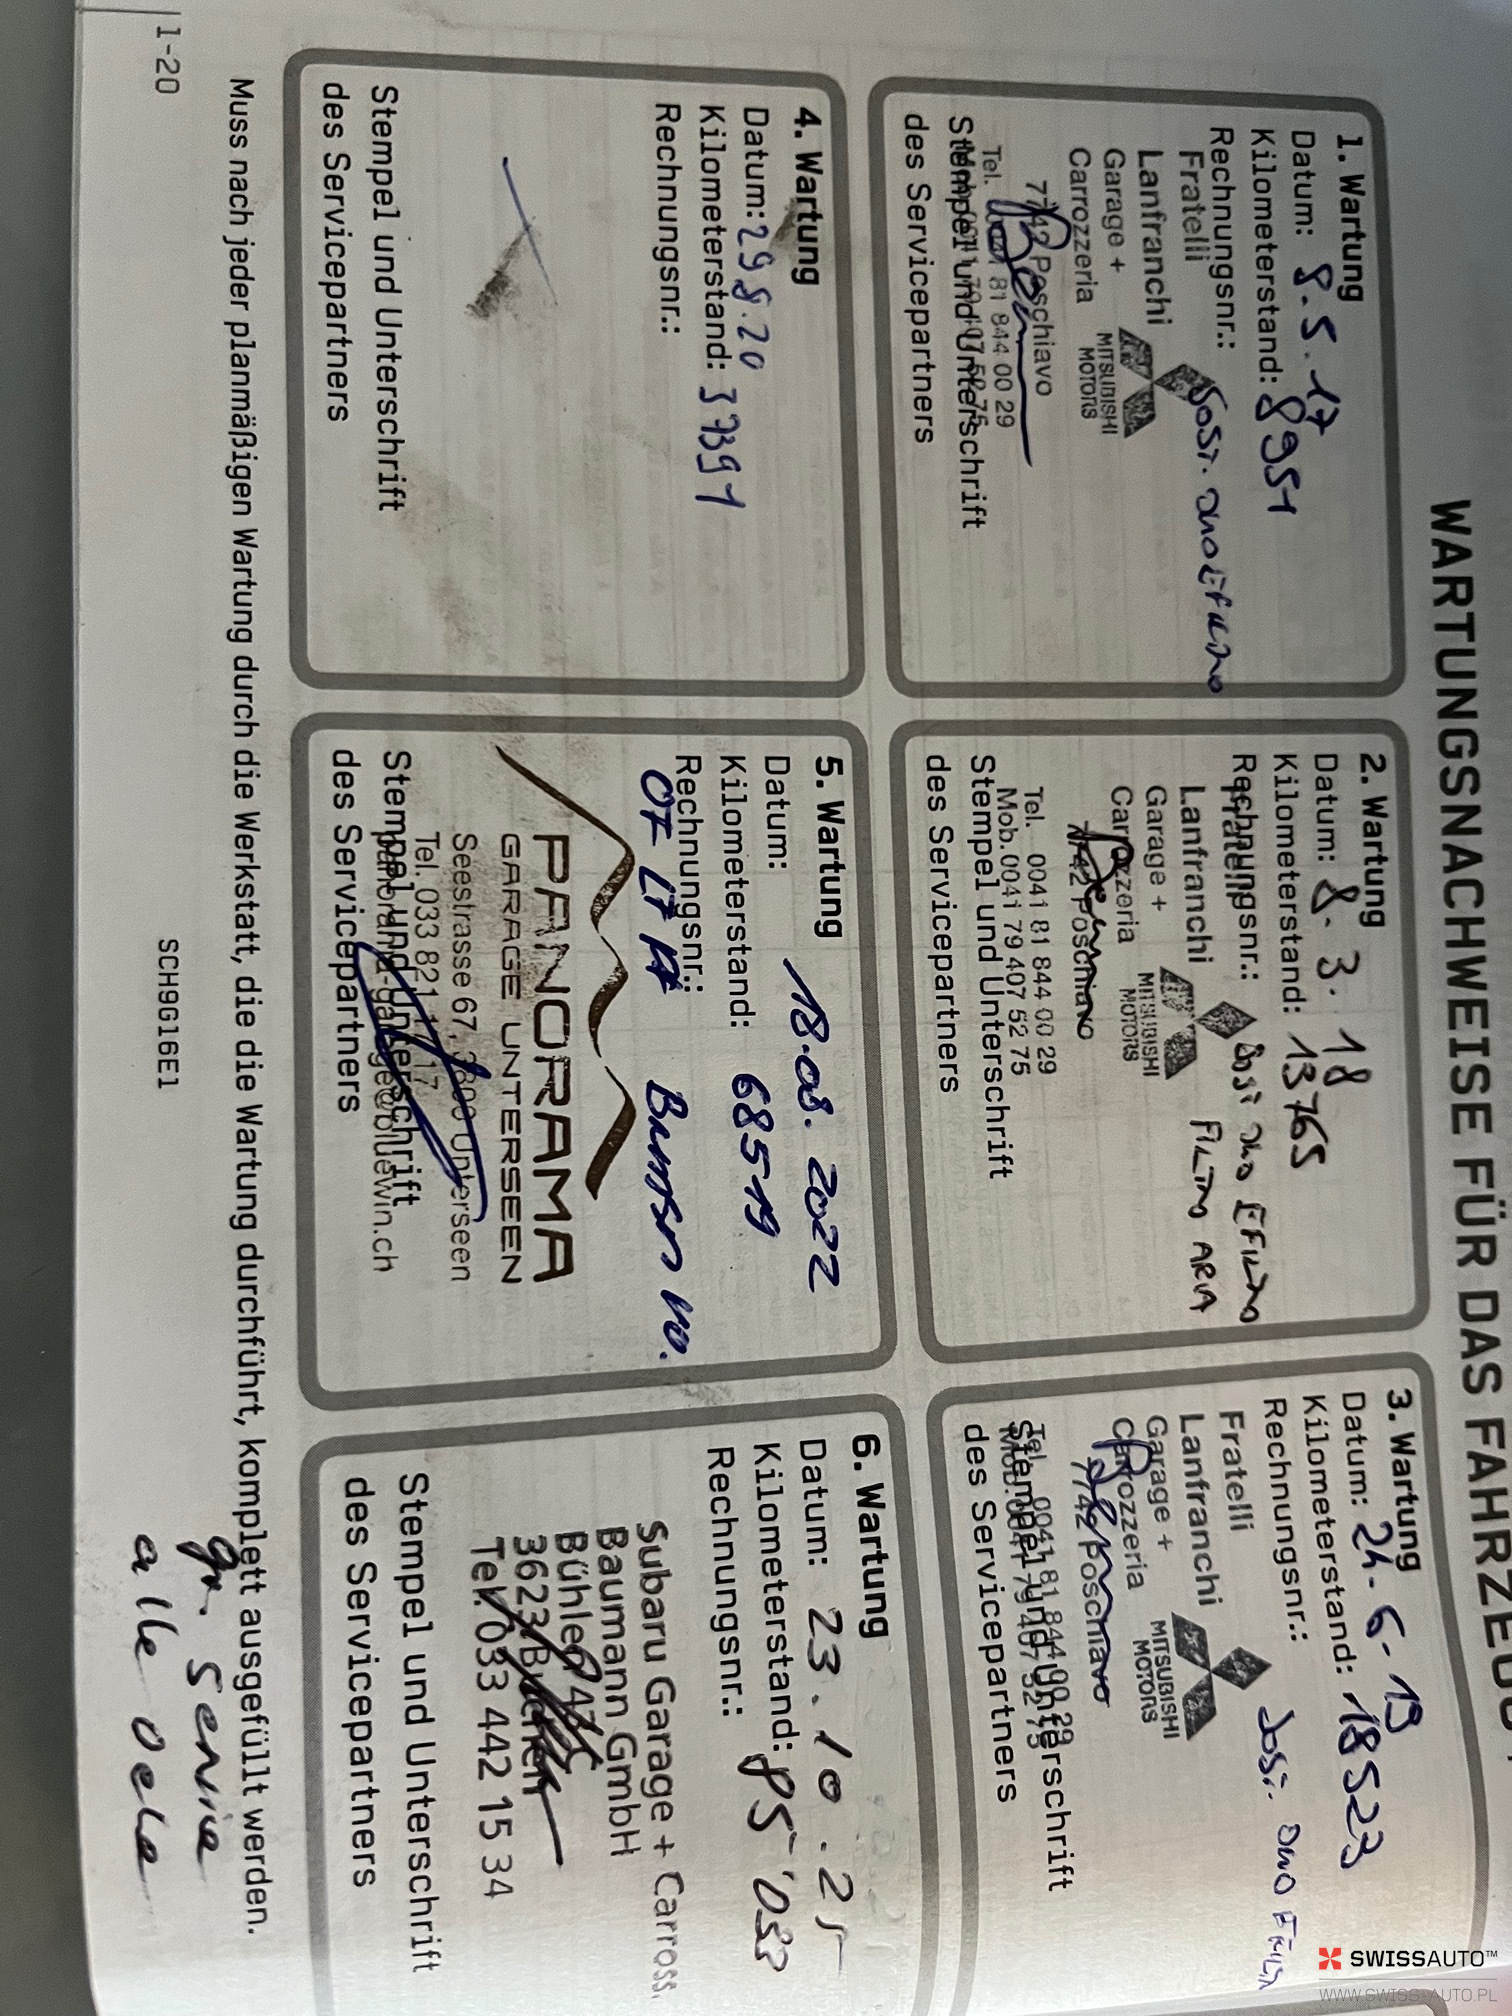 WARTUNGSNACHWEISE FÜR DAS FAHRZEUG
1. Wartung
Datum: 8.5.17
Kilometerstand: 8951
Rechnungsnr.:
Fratelli
Lanfranchi
Garage +
Carrozzeria
MITSUBISHI
MOTORS
7742 Poschiavo
Tel. 0041 81 844 00 29
Mob. 0041 79 407 52 75
Stempel und Unterschrift
des Servicepartners
2. Wartung
Datum: 8.3.18
Kilometerstand: 13765
Rechnungsnr.:
Fratelli
FILTRO ARIA
Lanfranchi
Garage +
Carrozzeria
MITSUBISHI
MOTORS
7742 Poschiavo
Tel. 0041 81 844 00 29
Mob. 0041 79 407 52 75
Stempel und Unterschrift
des Servicepartners
3. Wartung
Datum: 24-6-19
Kilometerstand: 18523
Rechnungsnr.:
Fratelli
Lanfranchi
Garage +
Carrozzeria
MITSUBISHI
MOTORS
7742 Poschiavo
Tel. 0041 81 844 00 29
Mob. 0041 79 407 52 75
Stempel und Unterschrift
des Servicepartners
4. Wartung
Datum: 29.8.20
Kilometerstand: 37391
Rechnungsnr.:
Stempel und Unterschrift
des Servicepartners
5. Wartung
Datum: 18.08.2022
Kilometerstand: 68519
Rechnungsnr.:
PANORAMA
GARAGE UNTERSEEN
Seestrasse 67, 3800 Unterseen
Tel. 033 821 17 17
panorama-garage@bluewin.ch
Stempel und Unterschrift
des Servicepartners
6. Wartung
Datum: 23.10.25
Kilometerstand: 85'033
Rechnungsnr.:
Subaru Garage + Carross.
Baumann GmbH
Bühl 47
3623 Buchen
Tel. 033 442 15 34
Stempel und Unterschrift
des Servicepartners
Muss nach jeder planmäßigen Wartung durch die Werkstatt, die die Wartung durchführt, komplett ausgefüllt werden.
gr. Service
alle Oele
1-20
SCH9G16E1
SWISSAUTO™
WWW.SWISS-AUTO.PL